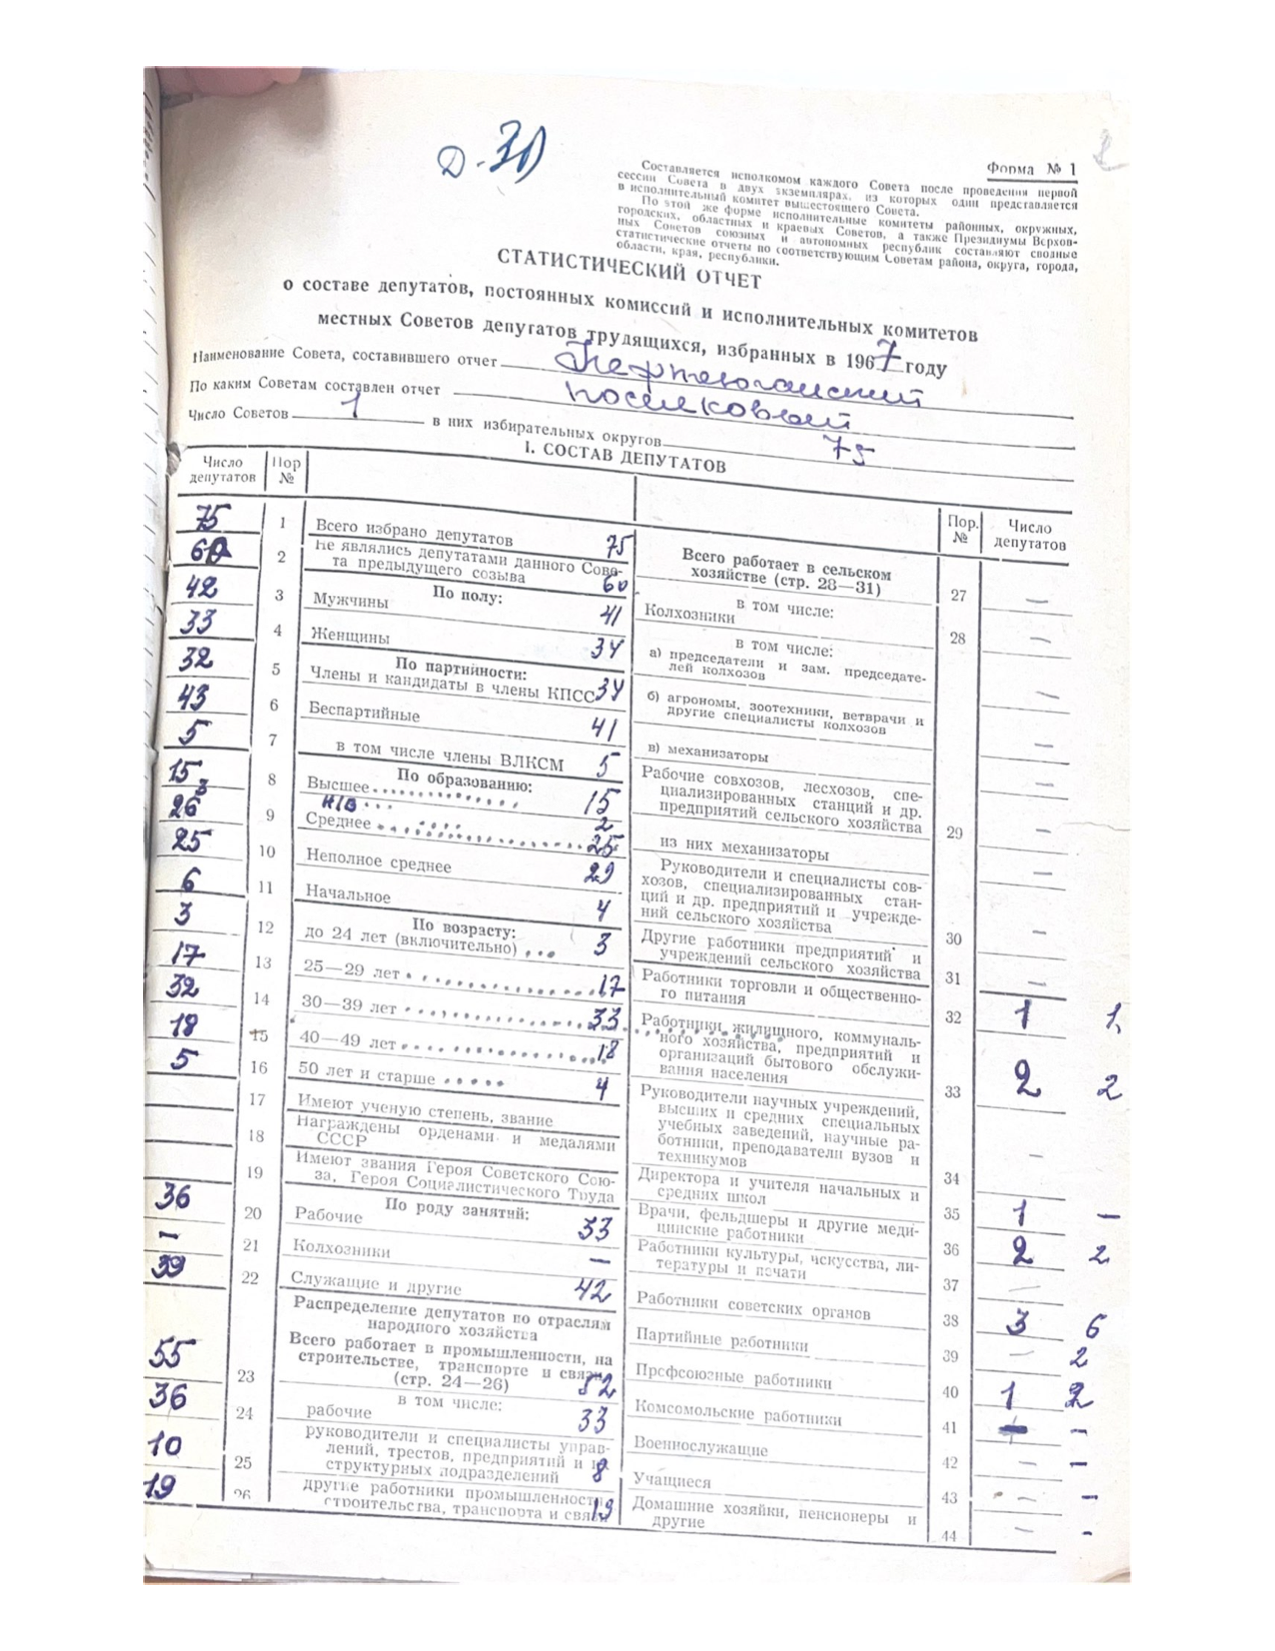 Д-30
Форма № 1
Составляется исполкомом каждого Совета после проведения первой
сессии Совета в двух экземплярах, из которых один представляется
в исполнительный комитет вышестоящего Совета.
По этой же форме исполнительные комитеты районных, окружных,
городских, областных и краевых Советов, а также Президиумы Верхов-
ных Советов союзных и автономных республик составляют сводные
статистические отчеты по соответствующим Советам района, округа, города,
области, края, республики.
СТАТИСТИЧЕСКИЙ ОТЧЕТ
о составе депутатов, постоянных комиссий и исполнительных комитетов
местных Советов депутатов трудящихся, избранных в 1967 году
Наименование Совета, составившего отчет Нефтеюганский
По каким Советам составлен отчет поселковый
Число Советов 1 в них избирательных округов 75
I. СОСТАВ ДЕПУТАТОВ
Число депутатов Пор № Пор. № Число депутатов
75 1 Всего избрано депутатов 75
60 2 Не являлись депутатами данного Сове-
та предыдущего созыва 60
По полу:
42 3 Мужчины 41
33 4 Женщины 34
По партийности:
32 5 Члены и кандидаты в члены КПСС 34
43 6 Беспартийные 41
5 7 в том числе члены ВЛКСМ 5
По образованию:
15 8 Высшее 15
3 н/в 2
26 9 Среднее 25
25 10 Неполное среднее 29
6 11 Начальное 4
По возрасту:
3 12 до 24 лет (включительно) 3
17 13 25—29 лет 17
32 14 30—39 лет 33
18 15 40—49 лет 18
5 16 50 лет и старше 4
17 Имеют ученую степень, звание
18 Награждены орденами и медалями
СССР
19 Имеют звания Героя Советского Сою-
за, Героя Социалистического Труда
По роду занятий:
36 20 Рабочие 33
— 21 Колхозники —
39 22 Служащие и другие 42
Распределение депутатов по отраслям
народного хозяйства
Всего работает в промышленности, на
строительстве, транспорте и связи
55 23 (стр. 24—26) 52
в том числе:
36 24 рабочие 33
руководители и специалисты управ-
лений, трестов, предприятий и их
10 25 структурных подразделений 8
19 26 другие работники промышленности,
строительства, транспорта и связи 19
Всего работает в сельском
хозяйстве (стр. 28—31) 27 —
в том числе:
Колхозники 28 —
в том числе:
а) председатели и зам. председате-
лей колхозов —
б) агрономы, зоотехники, ветврачи и
другие специалисты колхозов —
в) механизаторы —
Рабочие совхозов, лесхозов, спе-
циализированных станций и др.
предприятий сельского хозяйства 29 —
из них механизаторы —
Руководители и специалисты сов-
хозов, специализированных стан-
ций и др. предприятий и учрежде-
ний сельского хозяйства 30 —
Другие работники предприятий и
учреждений сельского хозяйства 31 —
Работники торговли и общественно-
го питания 32 1 1
Работники жилищного, коммуналь-
ного хозяйства, предприятий и
организаций бытового обслужи-
вания населения 33 2 2
Руководители научных учреждений,
высших и средних специальных
учебных заведений, научные ра-
ботники, преподаватели вузов и
техникумов 34 —
Директора и учителя начальных и
средних школ 35 1 —
Врачи, фельдшеры и другие меди-
цинские работники 36 2 2
Работники культуры, искусства, ли-
тературы и печати 37 —
Работники советских органов 38 3 6
Партийные работники 39 — 2
Профсоюзные работники 40 1 2
Комсомольские работники 41 — —
Военнослужащие 42 — —
Учащиеся 43 — —
Домашние хозяйки, пенсионеры и
другие 44 — -